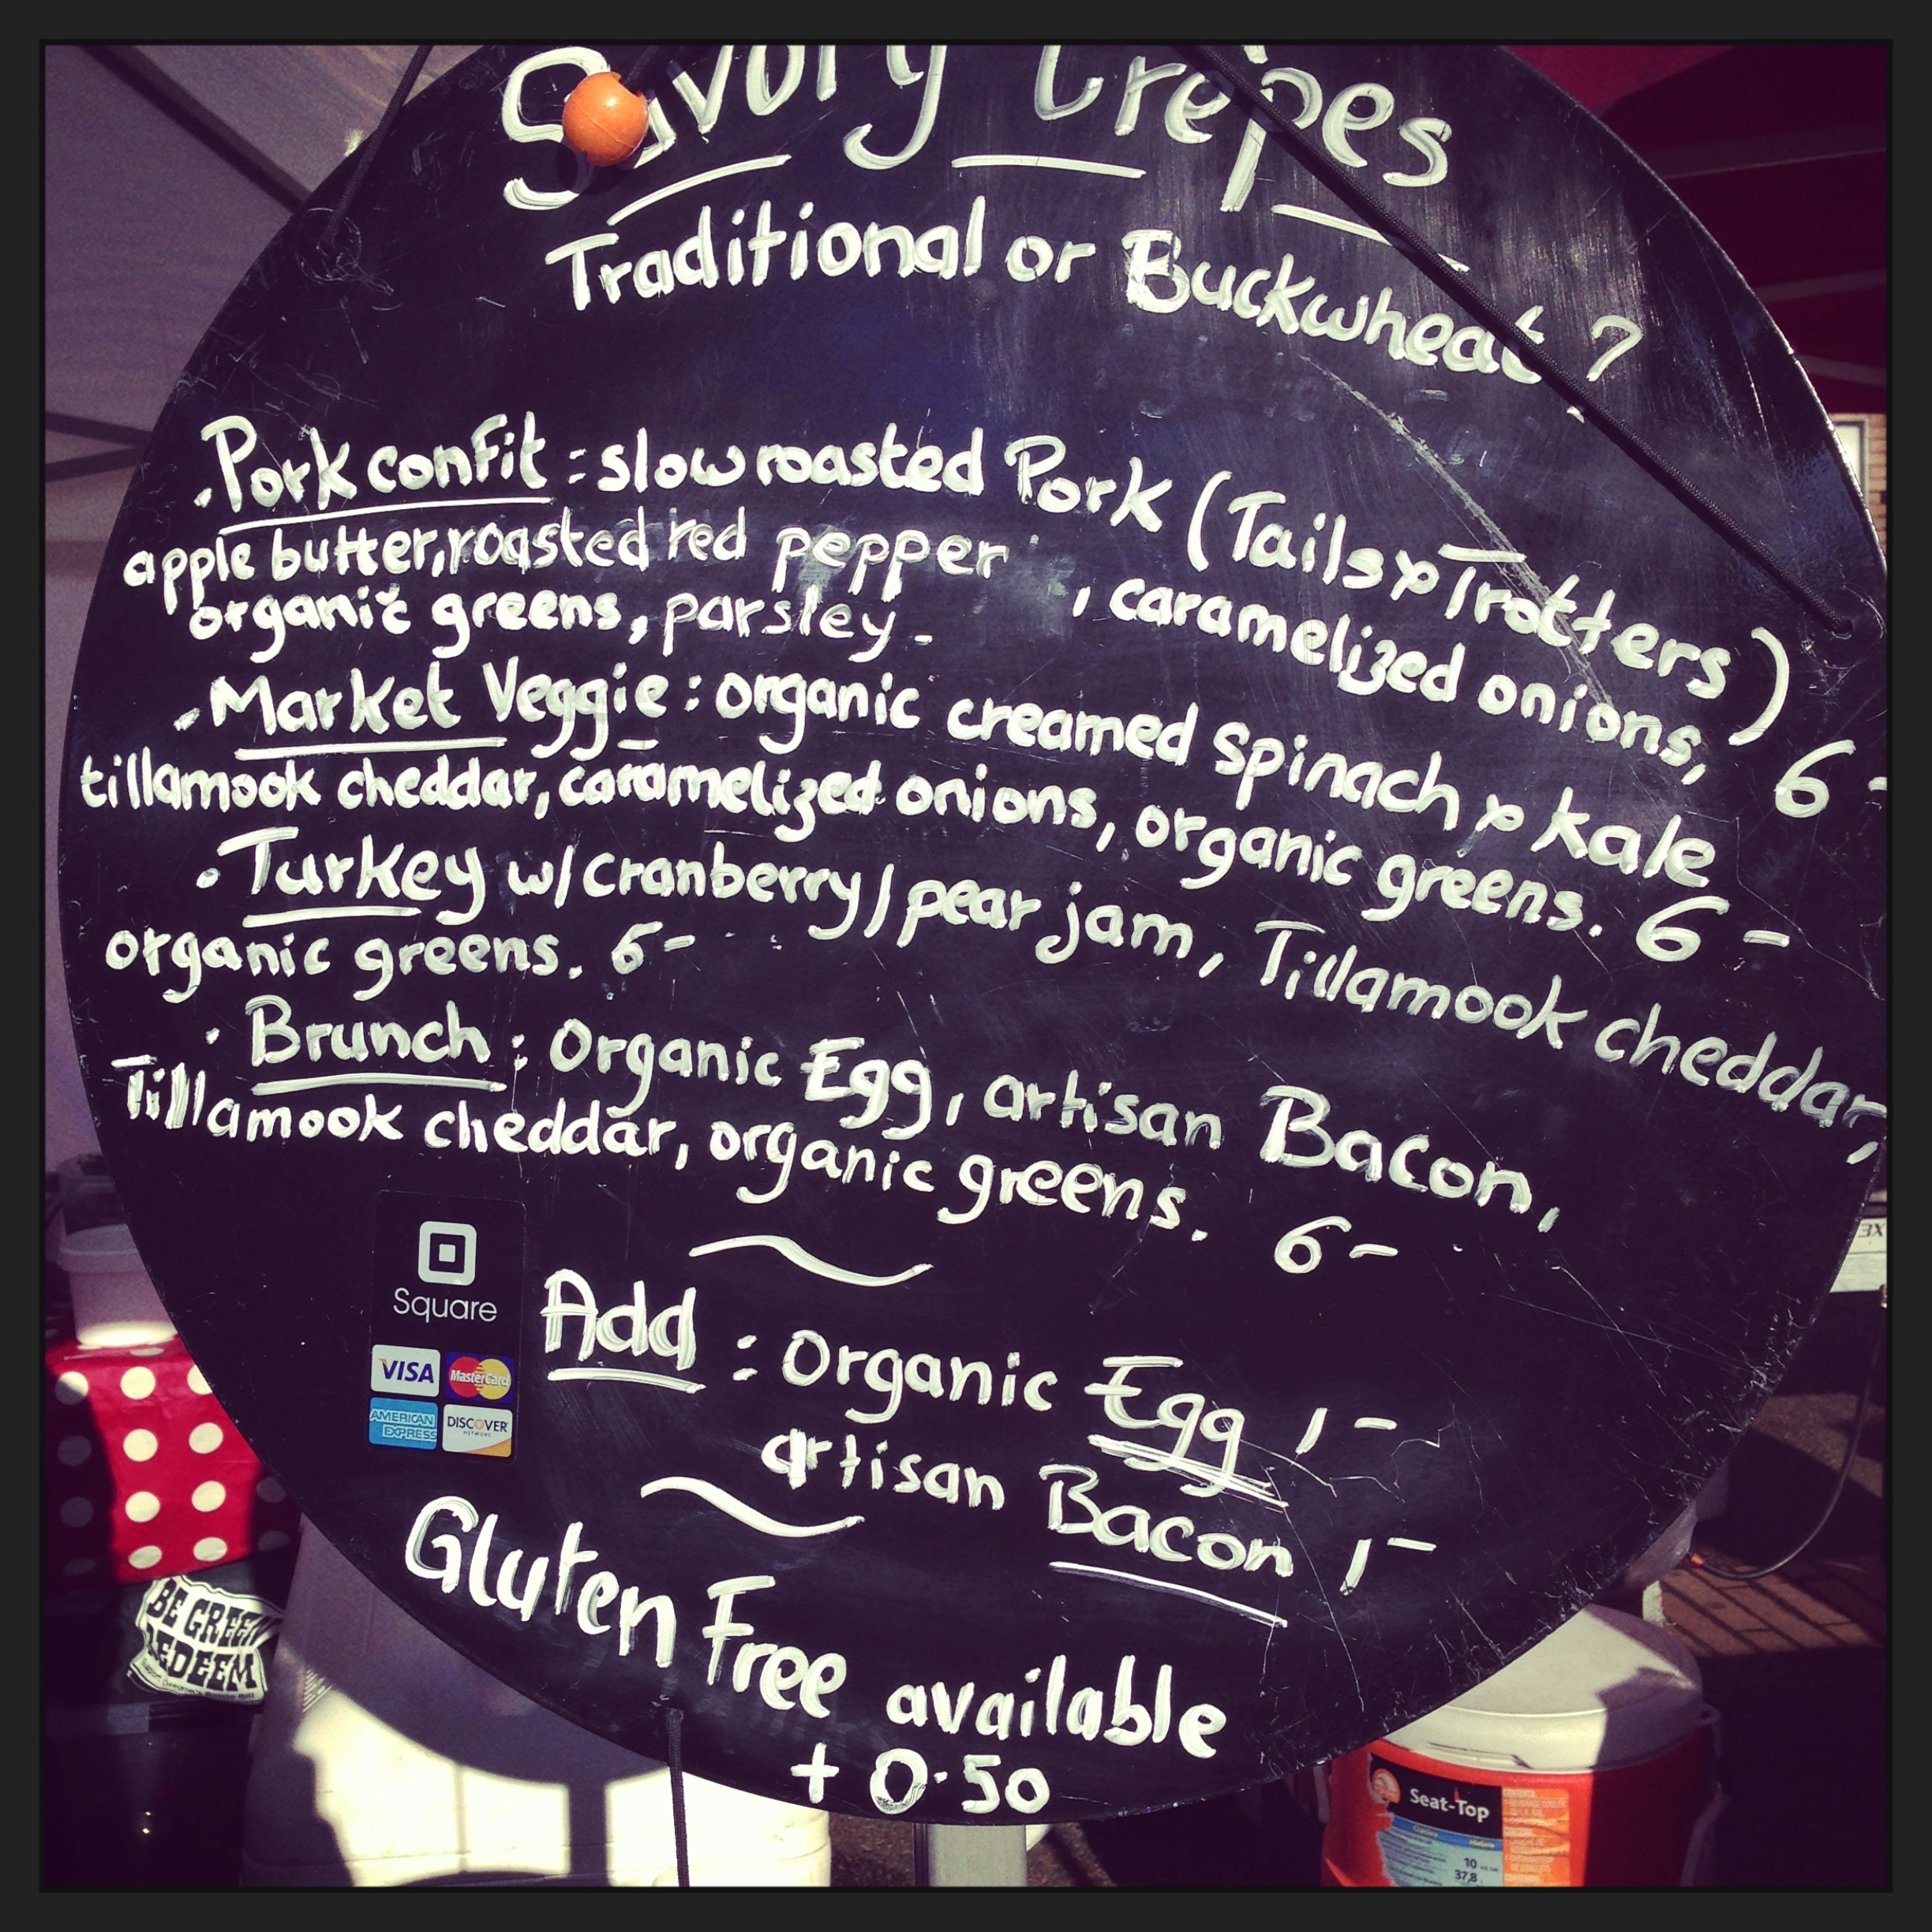 Savory Crêpes
Traditional or Buckwheat ?
. Pork confit : slow roasted Pork (Tails & Trotters)
apple butter, roasted red pepper , caramelized onions,
organic greens, parsley - 6-
. Market Veggie : organic creamed spinach & kale
tillamook cheddar, caramelized onions, organic greens. 6 -
. Turkey w/ cranberry / pear jam, Tillamook cheddar,
organic greens. 6-
. Brunch : Organic Egg, artisan Bacon,
Tillamook cheddar, organic greens. 6-
Square
VISA MasterCard
AMERICAN EXPRESS DISCOVER
NETWORK
Add : Organic Egg 1-
artisan Bacon 1-
Gluten Free available
+ 0.50
BE GREEN
REDEEM
Seat-Top
10
37,8
3X